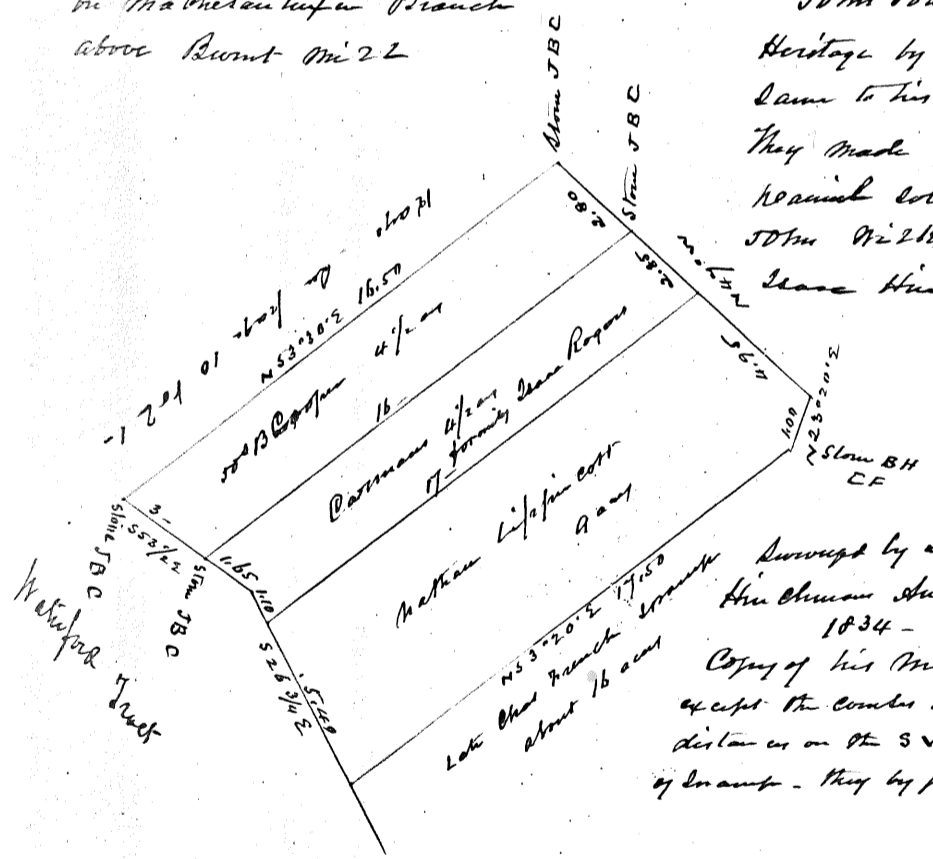 on Branch
above Burnt Mill
John
Heritage by
Same to his
They made
John
Isaac
Stone J B C
Stone J B C
2.80
2.85
N 47° W
4.95
N 23° 20' E
1.00
Stone B H
C F
page 10
N 53° 30' E 16.50
B Cooper 4½ a
16 -
Carmans 4½ a
17 - formerly Isaac Rogers
Nathan Lippincott
9 acs
N 53° 20' E 17.50
Late Chas French Swamp
about 16 acs
3 -
S 53½ E
Stone J B C
Stone J B C
1.65
1.10
S 26 3/4 E
5.49
Waterford
Tract
Surveyed by
Hinchman
1834 -
Copy of his
except the courses
distances on the S
of Swamp - they by